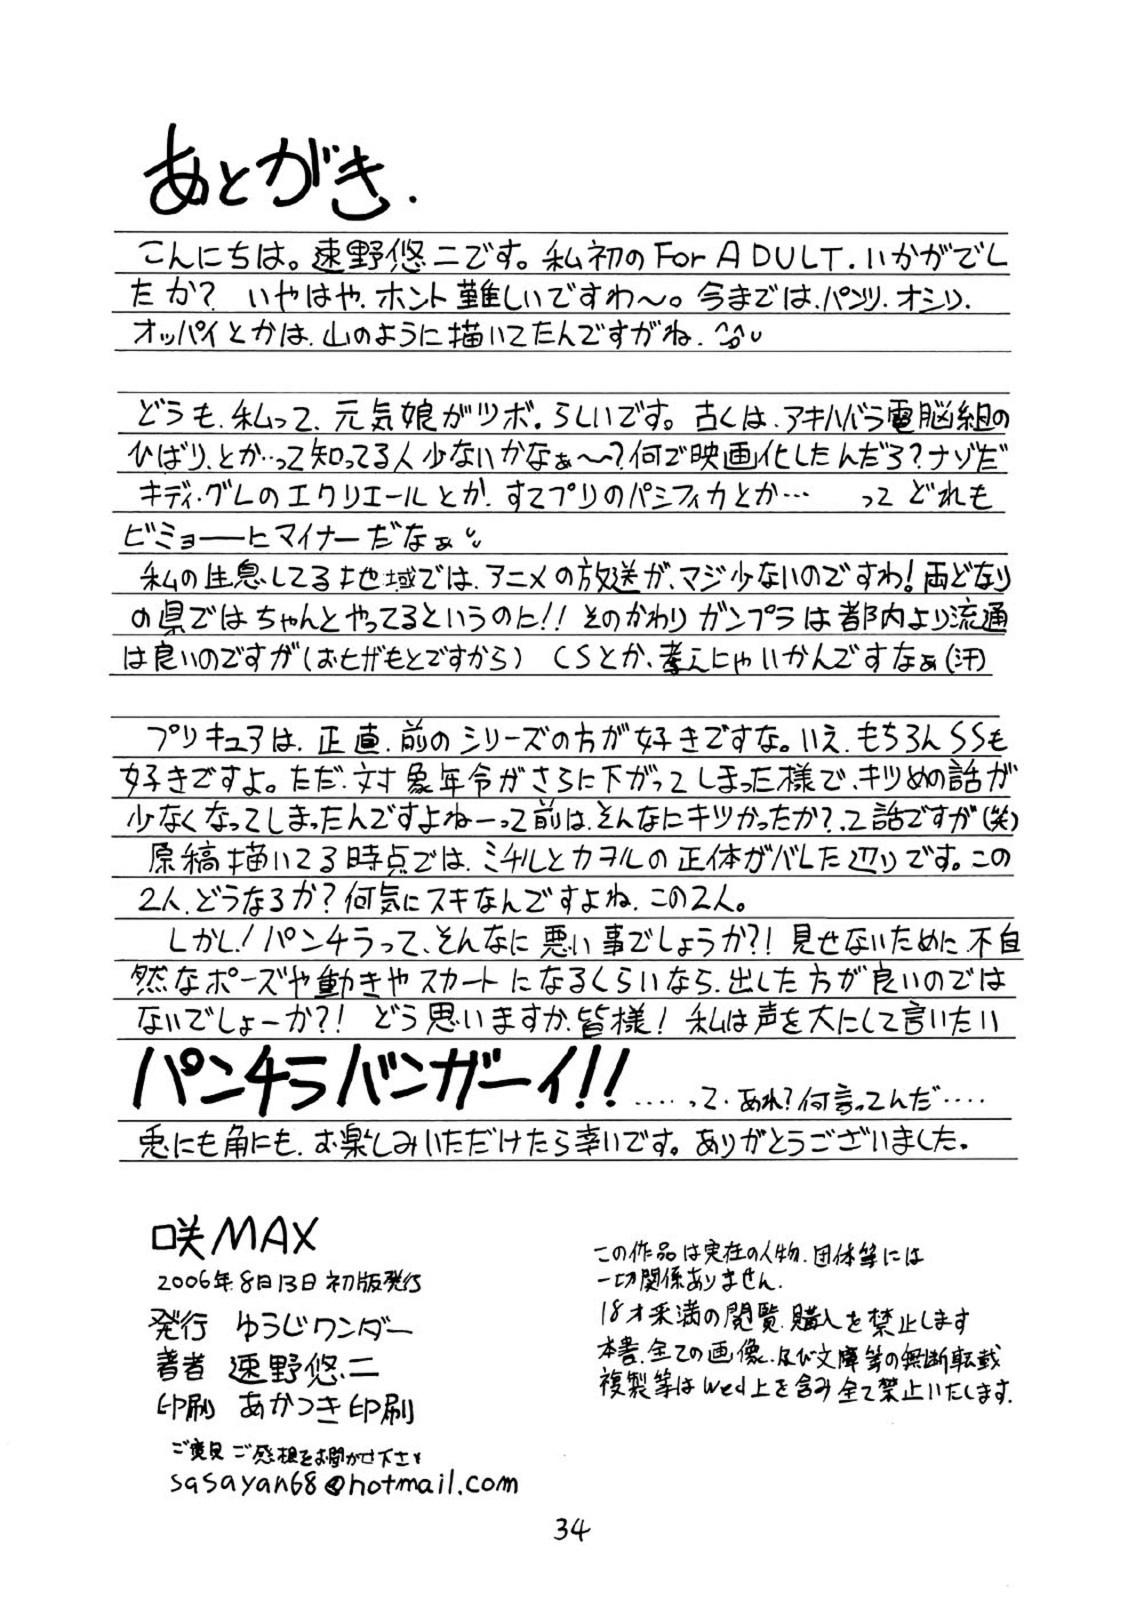 あとがき.
こんにちは。速野悠二です。私初のFor ADULT.いかがでし
たか? いやはや.ホント難しいですわ～。今までは.パンツ.オシリ.
オッパイとかは.山のように描いてたんですがね.
どうも.私って、元気娘がツボ。らしいです。古くは.アキハバラ電脳組の
ひばり、とか…って知ってる人少ないかなぁ～?何で映画化したんだろ?ナゾだ
キディ・グレのエクリエールとか.すてプリのパシフィカとか… ってどれも
ビミョーーにマイナーだなぁ
私の生息してる地域では、アニメの放送が、マジ少ないのですわ!両どなり
の県ではちゃんとやってるというのに!! そのかわりガンプラは都内より流通
は良いのですが(おヒザもとですから) CSとか、考えにゃいかんですなぁ(汗)
プリキュアは、正直.前のシリーズの方が好きですな。いえ.もちろんSSも
好きですよ。ただ.対象年令がさらに下がってしまった様で、キツめの話が
少なくなってしまったんですよねーって前は、そんなにキツかったか?って話ですが(笑)
原稿描いてる時点では、ミチルとカヲルの正体がバレた辺りです。この
2人.どうなるか?何気にスキなんですよね.この2人。
しかし!パンチラって、そんなに悪い事でしょうか?!見せないために.不自
然なポーズや動きやスカートになるくらいなら.出した方が良いのでは
ないでしょーか?! どう思いますか、皆様! 私は声を大にして言いたい
パンチラバンガーイ!! ‥‥って.あれ?何言ってんだ‥‥
兎にも角にも.お楽しみいただけたら幸いです。ありがとうございました。
咲MAX
2006年8月13日初版発行
発行 ゆうじワンダー
著者 速野悠二
印刷 あかつき印刷
ご意見ご感想をお聞かせ下さい
sasayan68@hotmail.com
この作品は実在の人物.団体等には
一切関係ありません.
18才未満の閲覧.購入を禁止します
本書.全ての画像.及び文庫等の無断転載
複製等はWed上を含み全て禁止いたします.
34